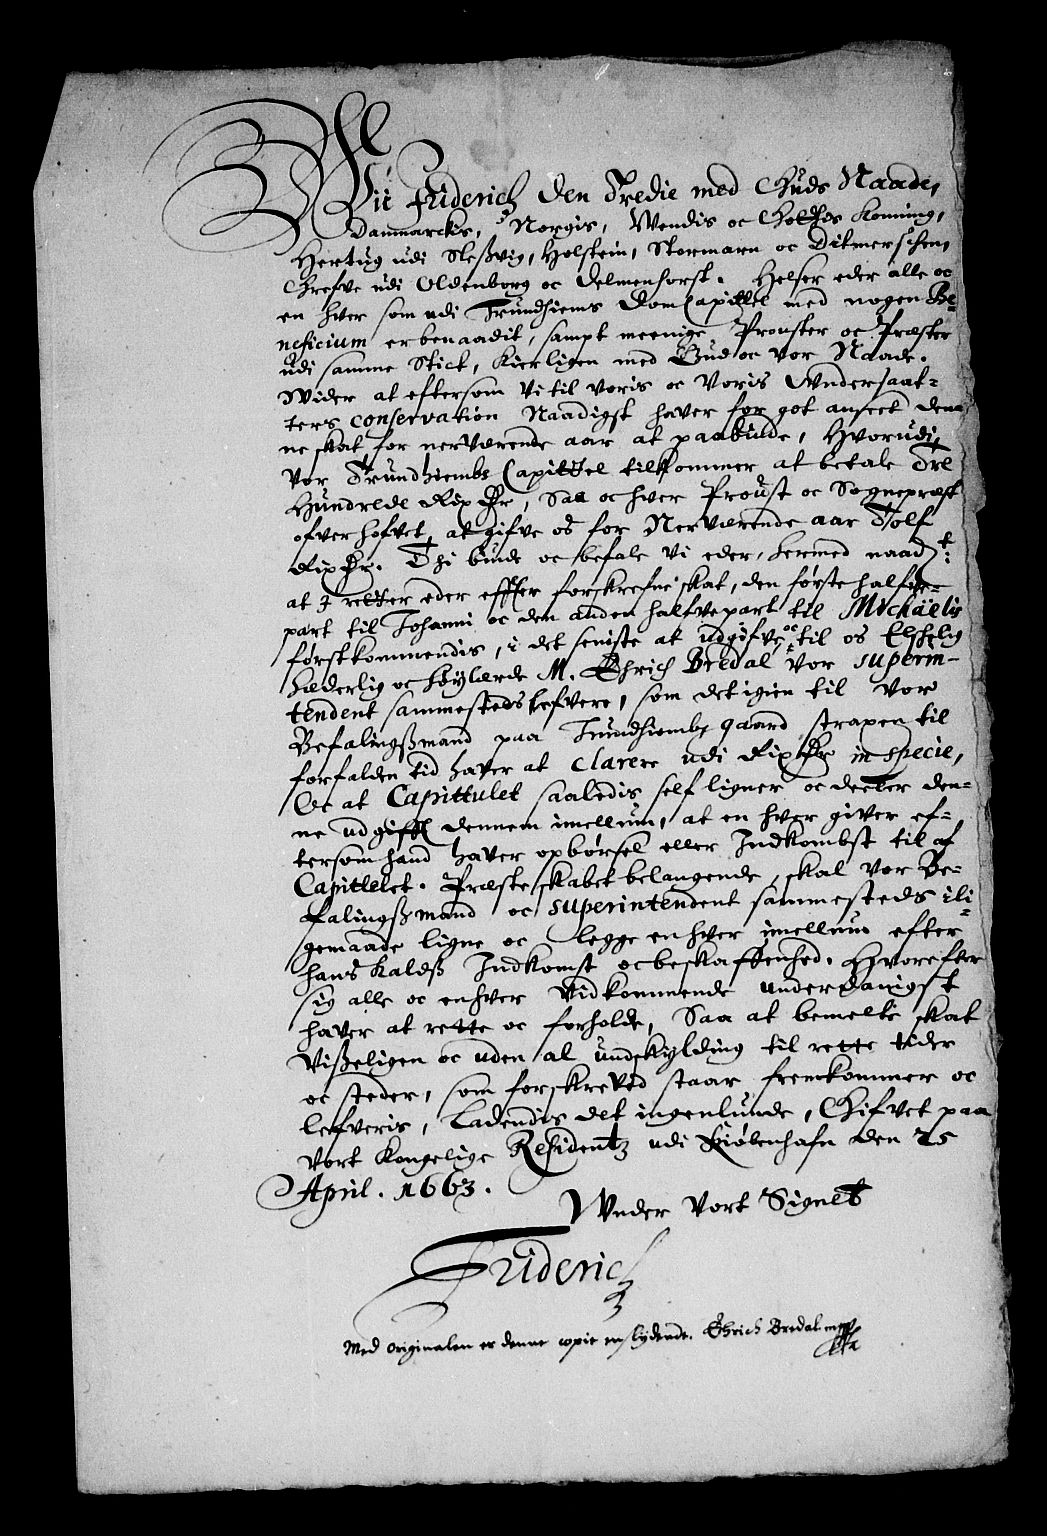 Wii Friderich den Tredie med Guds Naade,
Danmarckis, Norgis, Wendis oc Gothes Konning,
Hertug udi Sleßvig, Holstein, Stormarn oc Ditmerschen,
Grefve udi Oldenborg oc Delmenhorst. Helser eder alle oc
en hver som udi Trundhiems Dom Capittel med nogen Be-
neficium er benaadit, sampt meenige Prouster oc Præster
udi samme Stict, Kierligen med Gud oc vor Naade.
Wider at eftersom Vi til voris oc Voris Undersaat-
ters conservation Naadigst haver for got anseet den-
ne skat for nerværende aar at paabiude, Hvorudi
vor Trundhiembs Capittel tilkommer at betale Tre
Hundrede Rix Dr, Saa oc hver Proust oc Sognepræst
ofver hofvet, at gifve os for Nerværende aar Tolf
Rix Dr. Thi biude oc befale Vi eder, hermed naad:t
at I retter eder effter forskrefne skat, den første halfve-
part til Johanni oc den anden halfvepart til Michaëlis
førstkommendis, i det seniste at udgifve, oc til os Elskelig
hæderlig oc Høylærde M. Ehrich Bredal vor superin-
tendent sammesteds lefvere, som det igien til vor
Befalingßmand paa Trundhiembs gaard straxen til
forfalden tid haver at clarere udi Rix Dr in specie,
Oc at Capittulet saaledis self ligner oc deeler den-
ne udgifft dennem imellum, at en hver giver ef-
tersom hand haver opbørsel eller Indkombst til af
Capittelet. Præsteskabet belangende, skal vor Be-
falingßmand oc superintendent sammesteds ili-
gemaade ligne oc legge en hver imellum efter
hans Kaldß Indkomst oc beskaffenhed. Hvorefter
sig alle oc en hver Vidkommende underdanigst
haver at rette oc forholde, Saa at bemelte skat
visßeligen oc uden al undskylding til rette tider
oc steder, som forskreved staar fremkommer oc
lefveris, Ladendis det ingenlunde, Gifvet paa
vort Kongelige Residentz udi Kiøbenhafn den 25
April. 1663.
Under Vort Signet
Friderich
Med originalen er denne copie enslydende. Ehrich Bredal mpp